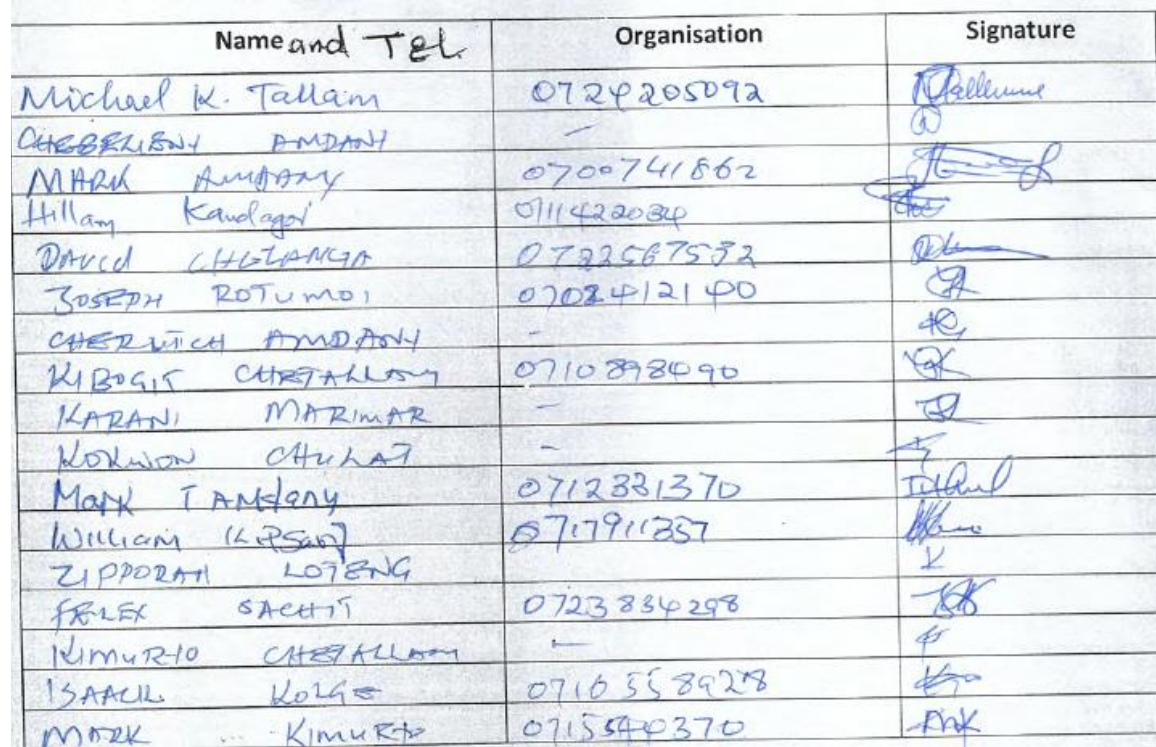 Name and TEL. Organisation Signature
Michael K. Tallam 0724205092
CHEBELIENY AMDANY -
MARK AMDANY 0700741862
Hillary Kandagor 0111422034
DAVID CHELANGA
JOSEPH ROTUMOI 0702412140
CHERUTICH AMDANY -
KIBOGIT CHETALLAM 0710898490
KARANI MARIMAR -
KOKWON CHULAT -
Mark T Amdany 0712331370
William Kipsang 0717911357
ZIPPORAH LOTENG
FELEX SACHIT 0723834298
KIMURIO CHETALLAM -
ISAACK KOLGE 0710558928
MARK KIMURIO 0715540370 MK